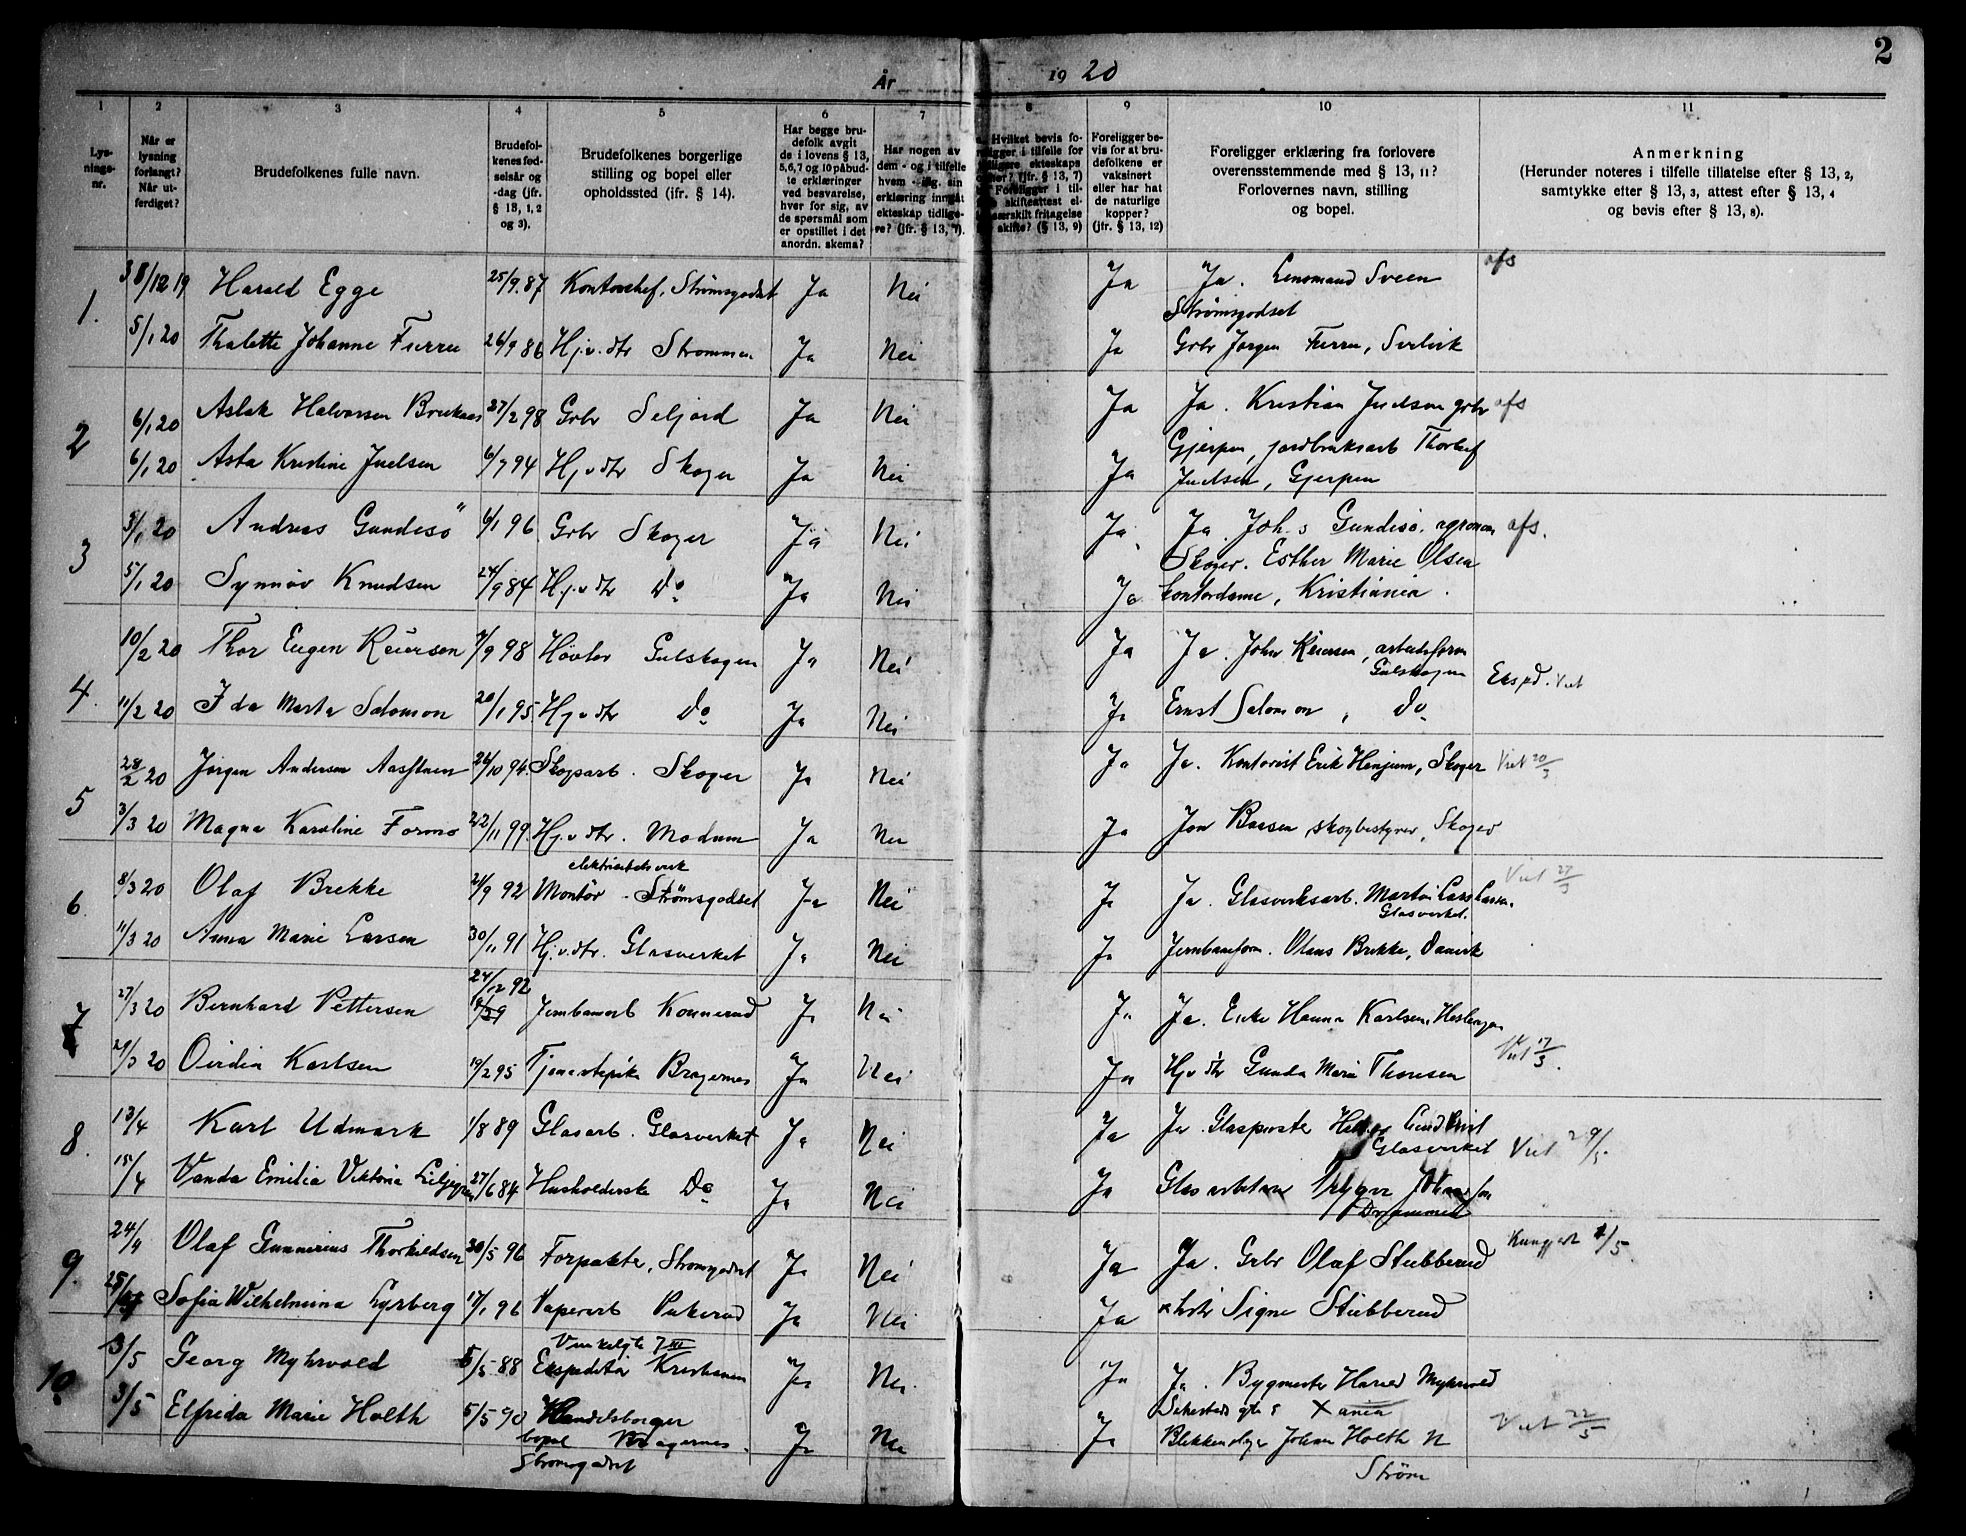 2
År 1920
1 2 3 4 5 6 7 8 9 10 11
Lysningsnr.
Når er lysning forlangt? Når utferdiget?
Brudefolkenes fulle navn.
Brudefolkenes fødselsår og -dag (jfr. § 13, 1, 2 og 3).
Brudefolkenes borgerlige stilling og bopel eller opholdssted (jfr. § 14).
Har begge brudefolk avgit de i lovens § 13, 5, 6, 7 og 10 påbudte erklæringer ved besvarelse, hver for sig, av de spørsmål som er opstillet i det anordn. skema?
Har nogen av dem - og i tilfelle hvem - iflg. sin erklæring inngåt ekteskap tidligere? (jfr. § 13, 7).
Foreligger bevis for at brudefolkene er vaksinert eller har hat de naturlige kopper? (jfr. § 13, 12)
Foreligger erklæring fra forlovere overensstemmende med § 13, 11?
Forlovernes navn, stilling og bopel.
Anmerkning
(Herunder noteres i tilfelle tillatelse efter § 13, 2, samtykke efter § 13, 3, attest efter § 13, 4 og bevis efter § 13, 8).
1. 31/12 19 Harald Egge 25/9 87 Kontorchef, Strømsgodset Ja Nei Ja Ja. Lensmand Sveen afs
Strømsgodset
5/1 20 Thalette Johanne Furru 26/9 86 Hj.v.dtr Strømmen Ja Nei Ja Grbr Jørgen Furru, Svelvik
2 6/1 20 Aslak Halvorsen 27/2 98 Grbr Seljord Ja Nei Ja Ja. Kristian Juelsen grbr afs
Gjerpen, jordbruksarb Thorleif
6/1 20 Asta Kristine Juelsen 6/7 94 Hj.v.dtr Skoger Ja Nei Ja Juelsen, Gjerpen
3 5/1 20 Andreas Gundesø 6/1 96 Grbr Skoger Ja Nei Ja Ja. Joh. s Gundesø. agronom afs.
Skoger. Esther Marie Olsen
5/1 20 Synnøv Knudsen 24/9 84 Hj.v.dtr Do Ja Nei Ja kontordame, Kristiania.
4. 10/2 20 Thor Eugen Reiersen 7/9 98 Høvler Gulskogen Ja Nei Ja Ja. Johs Reiersen, arbeidsform
Gulskogen Eksped. Viet
11/2 20 Ida Marta Salomon 20/1 95 Hj.v.dtr Do Ja Nei Ja Ernst Salomon, Do
5 28/2 20 Jørgen Andersen 26/10 94 Skogsarb. Skoger Ja Nei Ja Ja. Kontorist Erik Henjum, Skoger Viet 20/3
3/3 20 Magna Karoline Formo 22/11 99 Hj.v.dtr. Modum Ja Nei Ja Jon Baasen skogbestyrer, Skoger
elektrisitetsverk
6. 8/3 20 Olaf Brekke 24/9 92 Montør - Strømsgodset Ja Nei Ja Ja. Glasverksarb. Martin Lars Larsen. Viet 27/3
Glasverket.
11/3 20 Anna Marie Larsen 30/11 91 Hj.v.dtr. Glasverket Ja Nei Ja Jernbaneform. Olaus Brekke, Danvik
24/12 92
7 27/3 20 Bernhard Pettersen Jernbanearb Konnerud Ja Nei Ja Ja. Enke Hanna Karlsen,
Viet 17/3.
29/3 20 Oivdia Karlsen 19/2 95 Tjenestepike Bragernes Ja Nei Ja Hj.v.dtr Gunda Marie Thoresen
8. 13/4 Karl Udmark 1/8 89 Glasarb. Glasverket Ja Nei Ja Ja. Glaspuster Lindkvist
Glasverket Viet 29/5
15/4 Vanda Emilia Viktoria Liljegren 27/6 84 Husholderske Do Ja Nei Ja Glasarbeider Johansson
Drammen
9. 24/4 Olaf Gunnerius Thorkildsen 30/5 96 Forpakter, Strømsgodset Ja Nei Ja Ja. Grbr Olaf Stubberud Kungjort 4/5
25/4 Sofia Wilhelmina Lysberg 17/1 96 Papirarb Pukerud Ja Nei Ja Signe Stubberud
Vinkelgt 7 III
10. 3/5 Georg Myhrvold 5/5 88 Ekspeditør Kristiania Ja Nei Ja Ja. Bygmester Harald Myhrvold
Sehesteds gte 8 Xania
3/5 Elfrida Marie Holth 5/5 90 Handelsborger Ja Nei Ja Blikkenslager Johan Holth N Viet 22/5
bopel Bragernes. Strøm
Strømsgodset